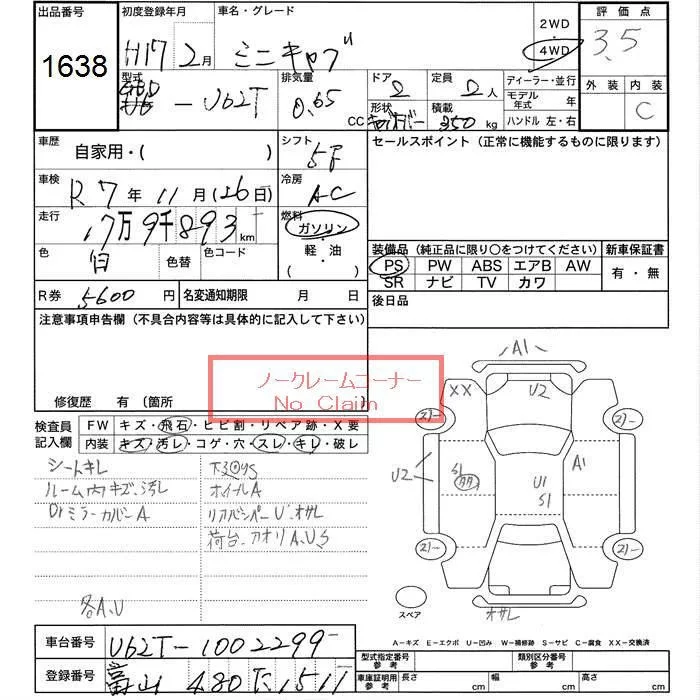 出品番号 初度登録年月 車名・グレード 2WD 評価点
1638 H17 2月 ミニキャブ 4WD 3.5
型式 排気量 ドア 定員 ディーラー・並行 外装 内装
GBD-U62T 0.65 CC 2 2人 モデル年式 年 C
形状 積載 ハンドル 左・右
350 kg
車歴 自家用・( ) シフト 5F セールスポイント (正常に機能するものに限ります)
車検 R7年 11月(26日) 冷房 AC
走行 17万9千893 km 燃料 ガソリン
軽・油
( )
色 白 色替 色コード
装備品 (純正品に限り○をつけてください) 新車保証書
PS PW ABS エアB AW 有・無
SR ナビ TV カワ
R券 5600円 名変通知期限 月 日 後日品
注意事項申告欄 (不具合内容等は具体的に記入して下さい)
ノークレームコーナー
No Claim
修復歴 有 (箇所
検査員記入欄 FW キズ・飛石・ヒビ割・リペア跡・X要
内装 キズ・汚レ・コゲ・穴・スレ・キレ・破レ
シートキレ
ルーム内キズ、汚レ ホイールA
Drミラーカバー A リアバンパー U オサレ
荷台、アオリ A、U、S
各A、U
A1
XX U2
21- 21-
U2 S1 U1 S1 A1
21- 21-
スペア オサレ
A-キズ E-エクボ U-凹み W-補修跡 S-サビ C-腐食 XX-交換済
車台番号 U62T-1002299
登録番号 富山 480 1511
型式指定番号 参考 類別区分番号 参考
車庫証明用 参考 長さ cm 幅 cm 高さ cm